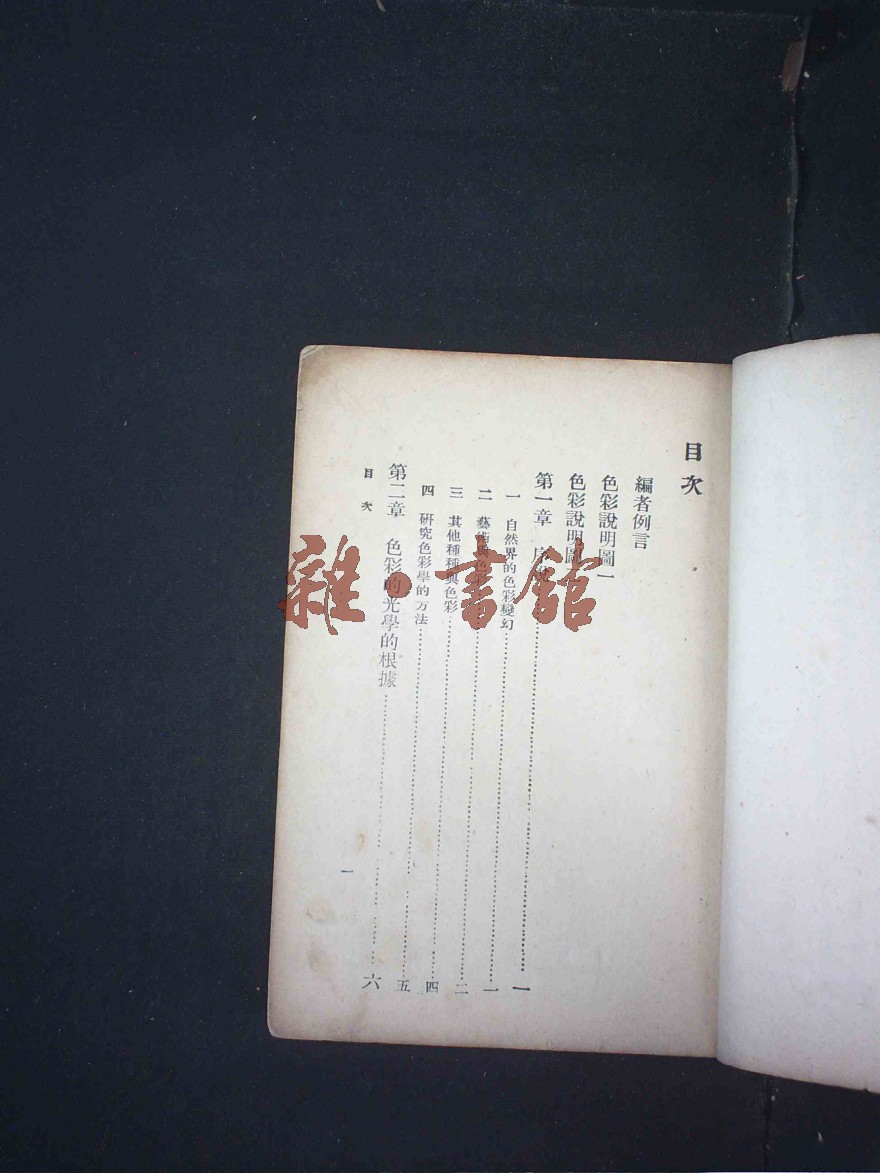 目次
編者例言
色彩說明圖一
色彩說明圖
第一章 序……一
一 自然界的色彩變幻……一
二 藝術與色彩……二
三 其他種種與色彩……四
四 研究色彩學的方法……五
第二章 色彩的光學的根據……六
目次
一
雜·書館